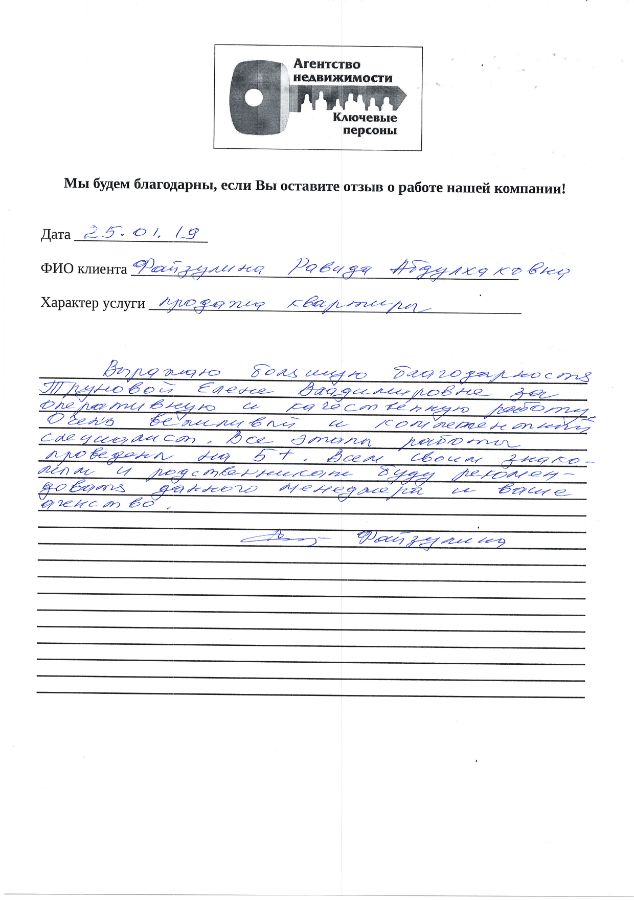 Агентство
недвижимости
Ключевые
персоны
Мы будем благодарны, если Вы оставите отзыв о работе нашей компании!
Дата 25.01.19
ФИО клиента Файзулина Равида Абдулхаковна
Характер услуги продажа квартиры
Выражаю большую благодарность
Труновой Елене Владимировне за
оперативную и качественную работу.
Очень вежливый и компетентный
специалист. Все этапы работы
проведены на 5+. Всем своим знако-
мым и родственникам буду рекомен-
довать данного менеджера и ваше
агенство.
Файзулина